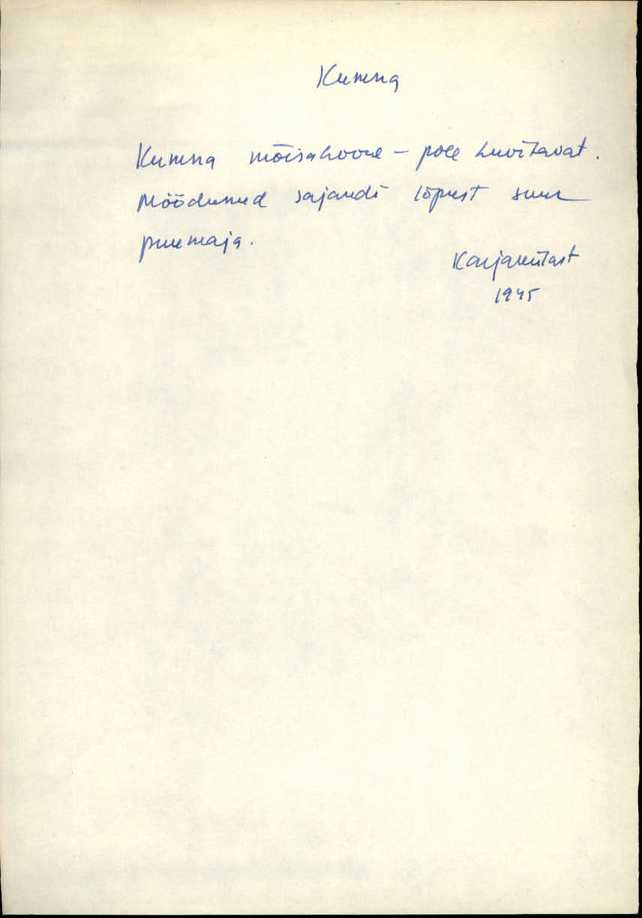 Kumna
Kumna mõisahoone – pole huvitavat.
Möödunud sajandi lõpust suur
puumaja.
Karjakülast
1945